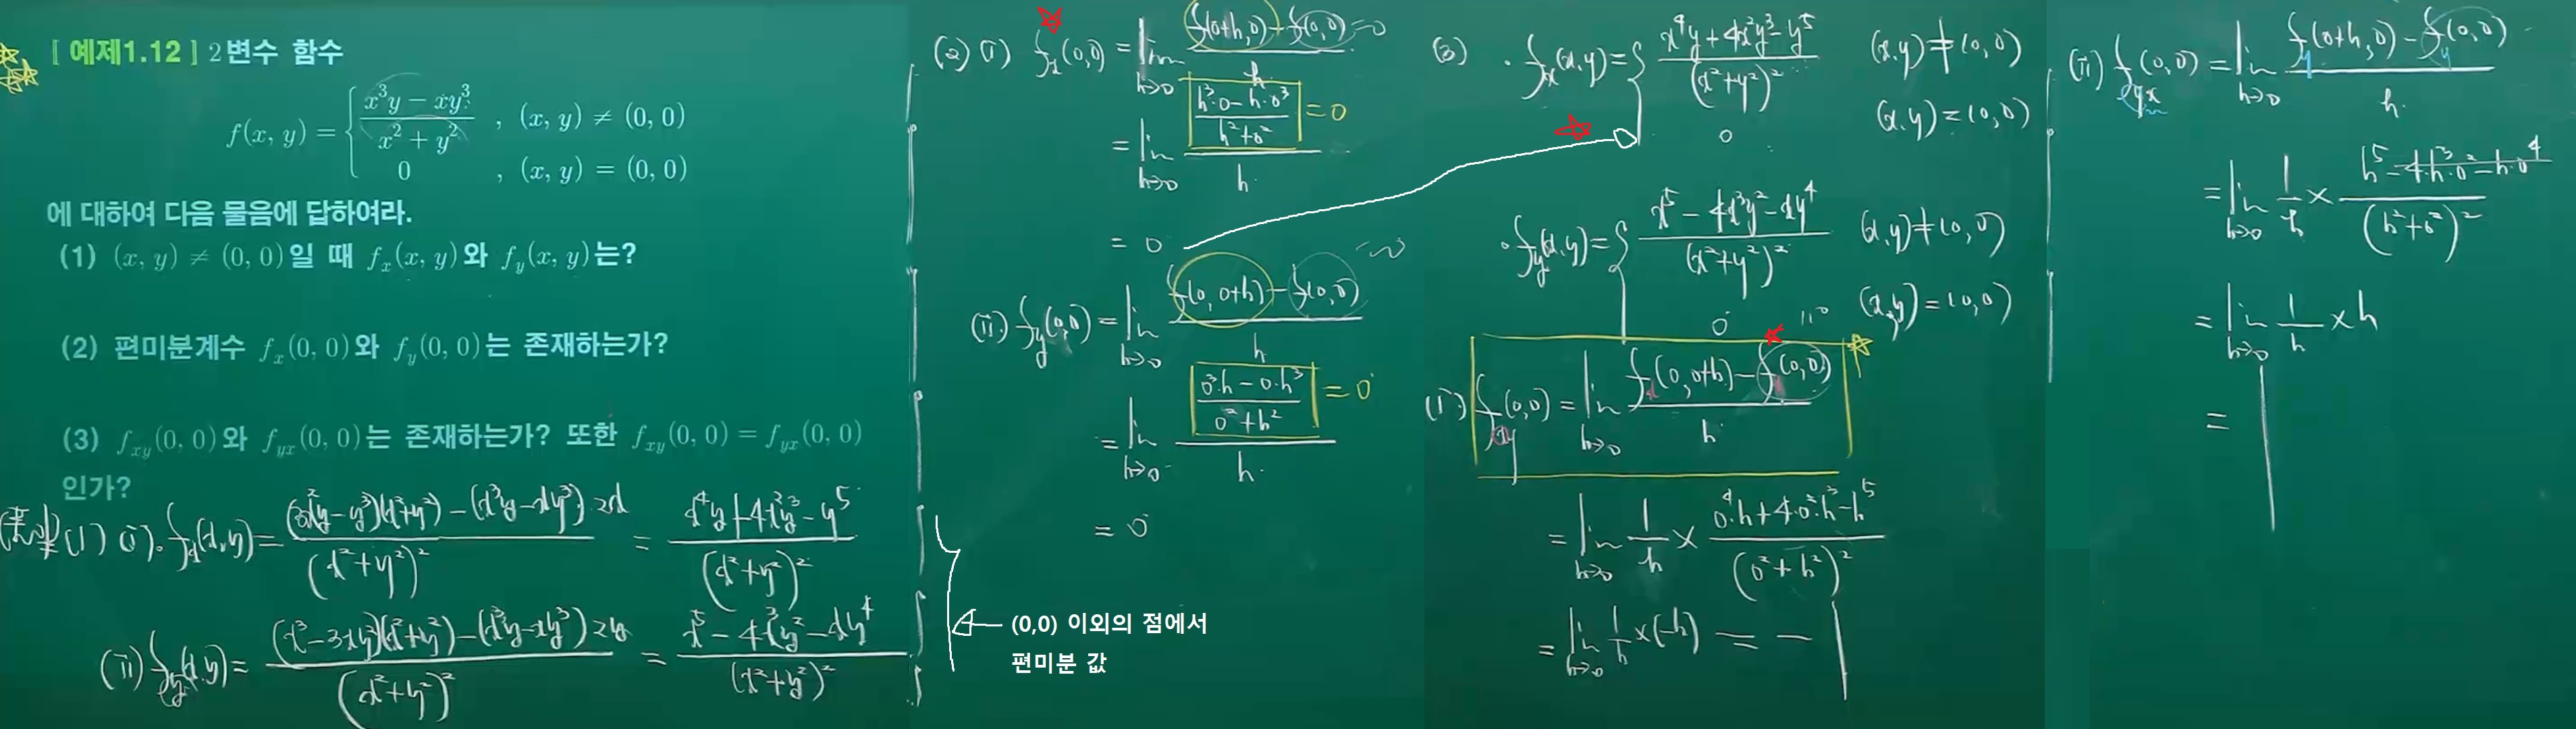 [ 예제1.12 ] 2변수 함수
f(x, y) = { (x³y − xy³)/(x² + y²) , (x, y) ≠ (0, 0)
0 , (x, y) = (0, 0)
에 대하여 다음 물음에 답하여라.
(1) (x, y) ≠ (0, 0)일 때 fₓ(x, y)와 f_y(x, y)는?
(2) 편미분계수 fₓ(0, 0)와 f_y(0, 0)는 존재하는가?
(3) f_xy(0, 0)와 f_yx(0, 0)는 존재하는가? 또한 f_xy(0, 0) = f_yx(0, 0)
인가?
(풀이) (1) (i) fₓ(x,y) = ((3x²y−y³)(x²+y²) − (x³y−xy³)2x)/(x²+y²)² = (x⁴y+4x²y³−y⁵)/(x²+y²)²
(ii) f_y(x,y) = ((x³−3xy²)(x²+y²) − (x³y−xy³)2y)/(x²+y²)² = (x⁵−4x³y²−xy⁴)/(x²+y²)²
(0,0) 이외의 점에서
편미분 값
(2) (i) fₓ(0,0) = lim_{h→0} (f(0+h,0) − f(0,0))/h =0
= lim_{h→0} ((h³·0−h·0³)/(h²+0²))/h =0
= 0
(ii) f_y(0,0) = lim_{h→0} (f(0,0+h) − f(0,0))/h =0
= lim_{h→0} ((0³·h−0·h³)/(0²+h²))/h =0
= 0
(3) · fₓ(x,y) = { (x⁴y+4x²y³−y⁵)/(x²+y²)² (x,y)≠(0,0)
0 (x,y)=(0,0)
· f_y(x,y) = { (x⁵−4x³y²−xy⁴)/(x²+y²)² (x,y)≠(0,0)
0 (x,y)=(0,0)
(i) f_xy(0,0) = lim_{h→0} (fₓ(0,0+h) − fₓ(0,0))/h
= lim_{h→0} 1/h × (0⁴·h+4·0²·h³−h⁵)/(0²+h²)²
= lim_{h→0} 1/h ×(−h) = −1
(ii) f_yx(0,0) = lim_{h→0} (f_y(0+h,0) − f_y(0,0))/h
= lim_{h→0} 1/h × (h⁵−4·h³·0²−h·0⁴)/(h²+0²)²
= lim_{h→0} 1/h × h
= 1